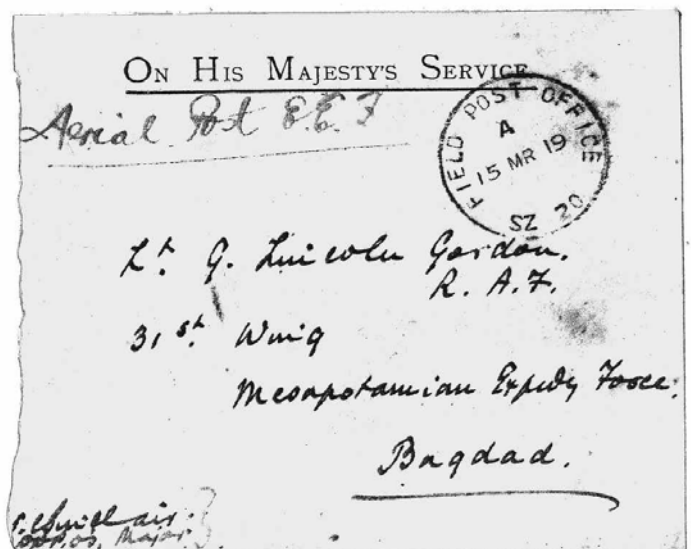 ON HIS MAJESTY'S SERVICE
Aerial Post E.E.F
FIELD POST OFFICE
A
15 MR 19
SZ 20
Lt. G. Lincoln Gordon.
R. A. F.
31st. Wing
Mesopotamian Expedy Force.
Bagdad.
Major